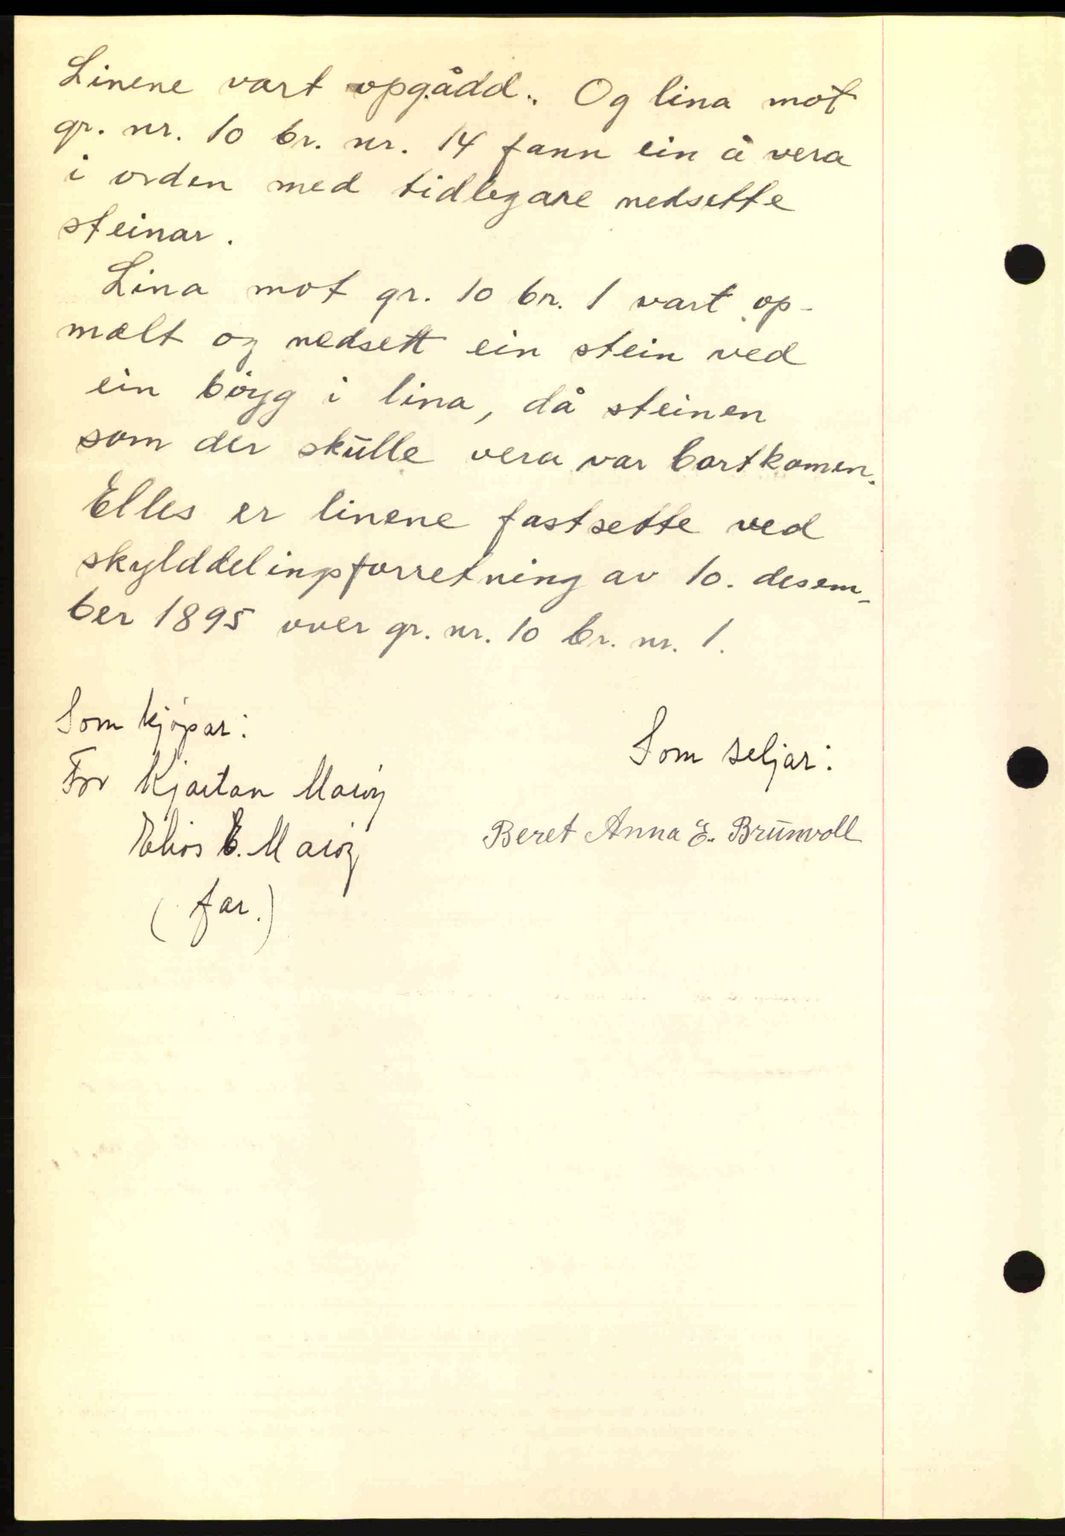 Linene vart opgådd. Og lina mot
gr. nr. 10 br. nr. 14 fann ein å vera
i orden med tidlegare nedsette
steinar.
Lina mot gr. 10 br. 1 vart op-
mælt og nedsett ein stein ved
ein bøyg i lina, då steinen
som der skulle vera var bortkomen.
Elles er linene fastsette ved
skylddelingsforretning av 10. desem-
ber 1895 over gr. nr. 10 br. nr. 1.
Som kjøpar:
Som seljar:
For Kjartan Marøy
Beret Anna E. Brunvoll
E. Marøy
(far.)